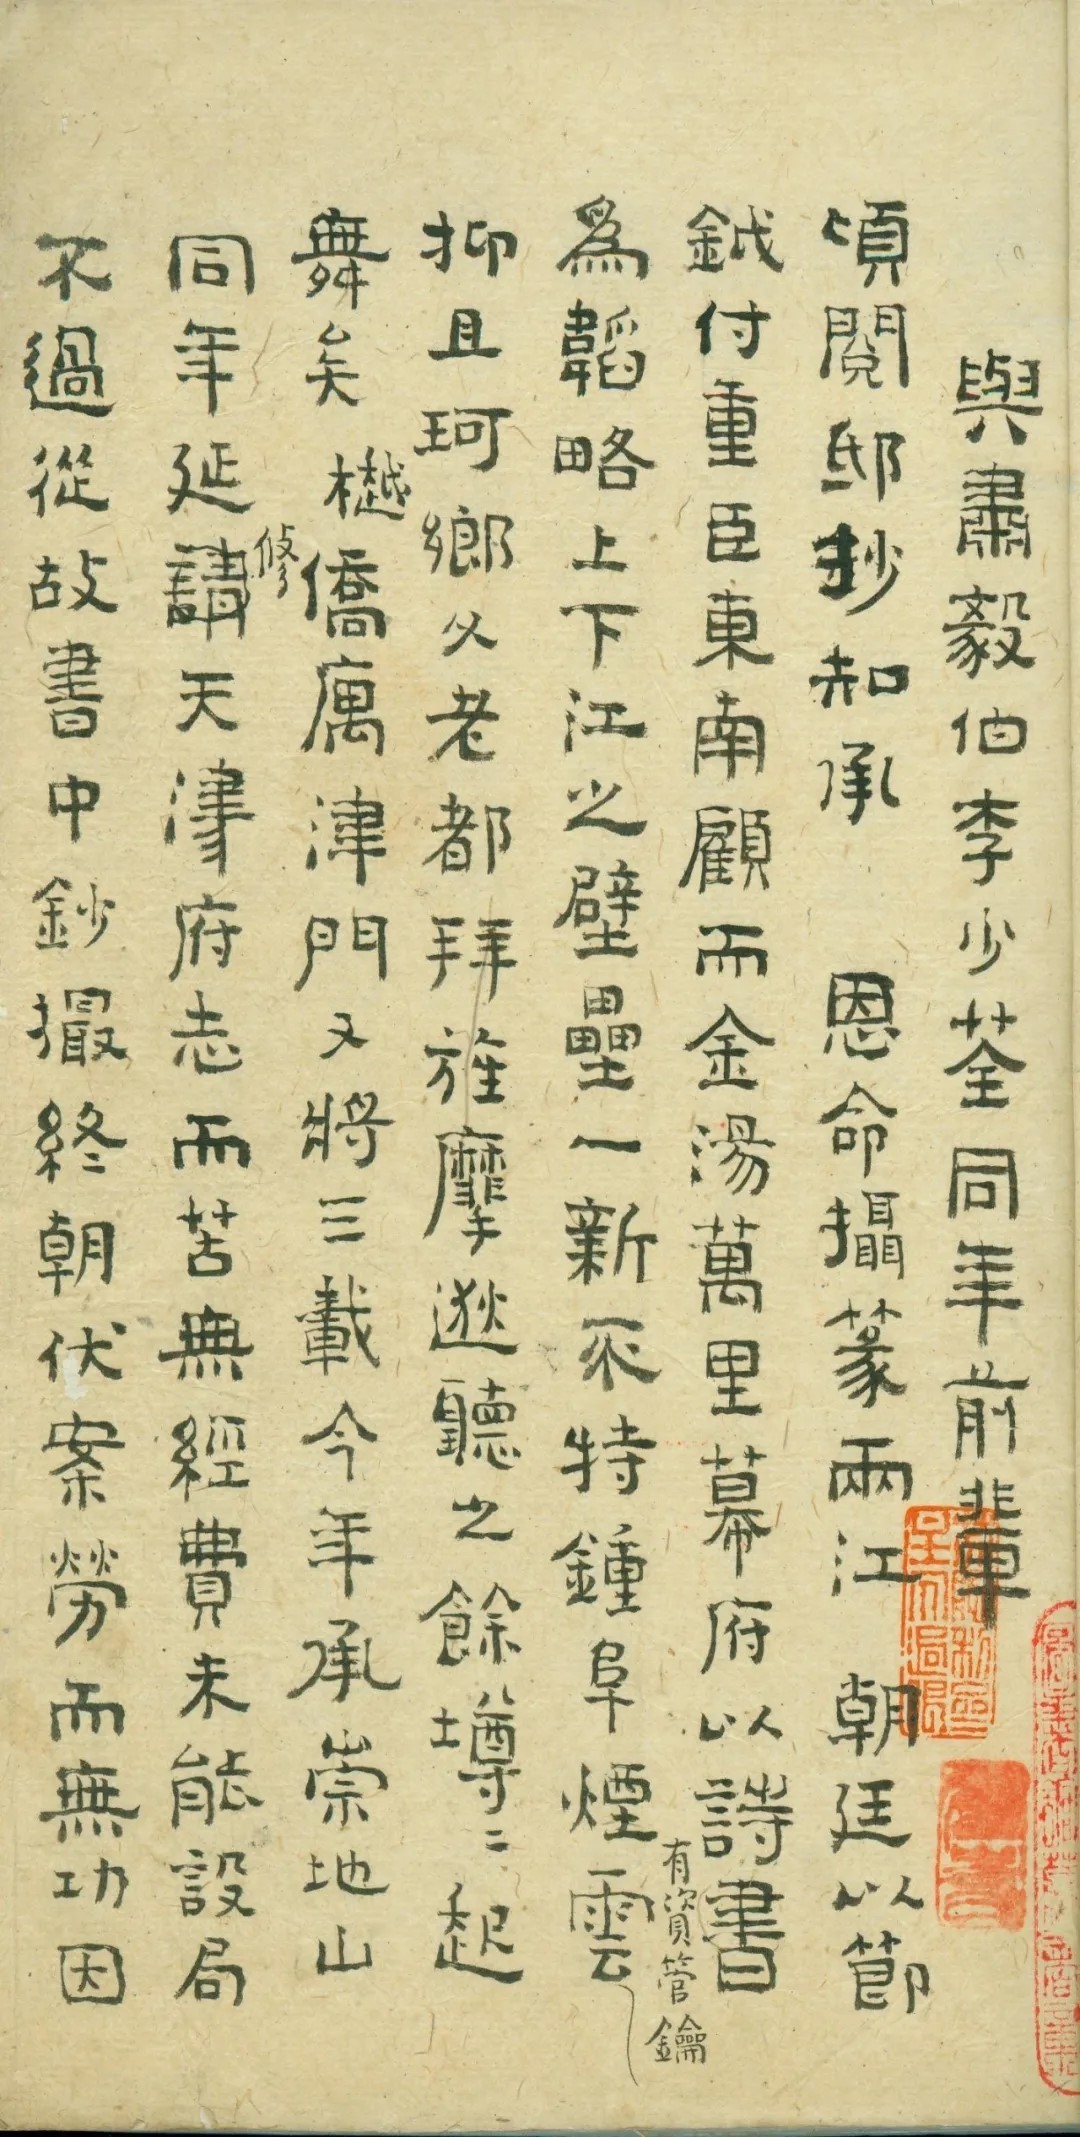 與肅毅伯李少荃同年前輩
頃閱邸抄知承 恩命攝篆兩江 朝廷以節
鉞付重臣東南顧而金湯萬里幕府以詩書
有資管鑰
為韜略上下江之壁壘一新不特鍾阜煙雲
抑且珂鄉父老都拜旌麾逖聽之餘墫〻起
舞矣 樾僑寓津門又將三載今年承崇地山
同年延請修天津府志而苦無經費未能設局
不過從故書中鈔撮終朝伏案勞而無功因